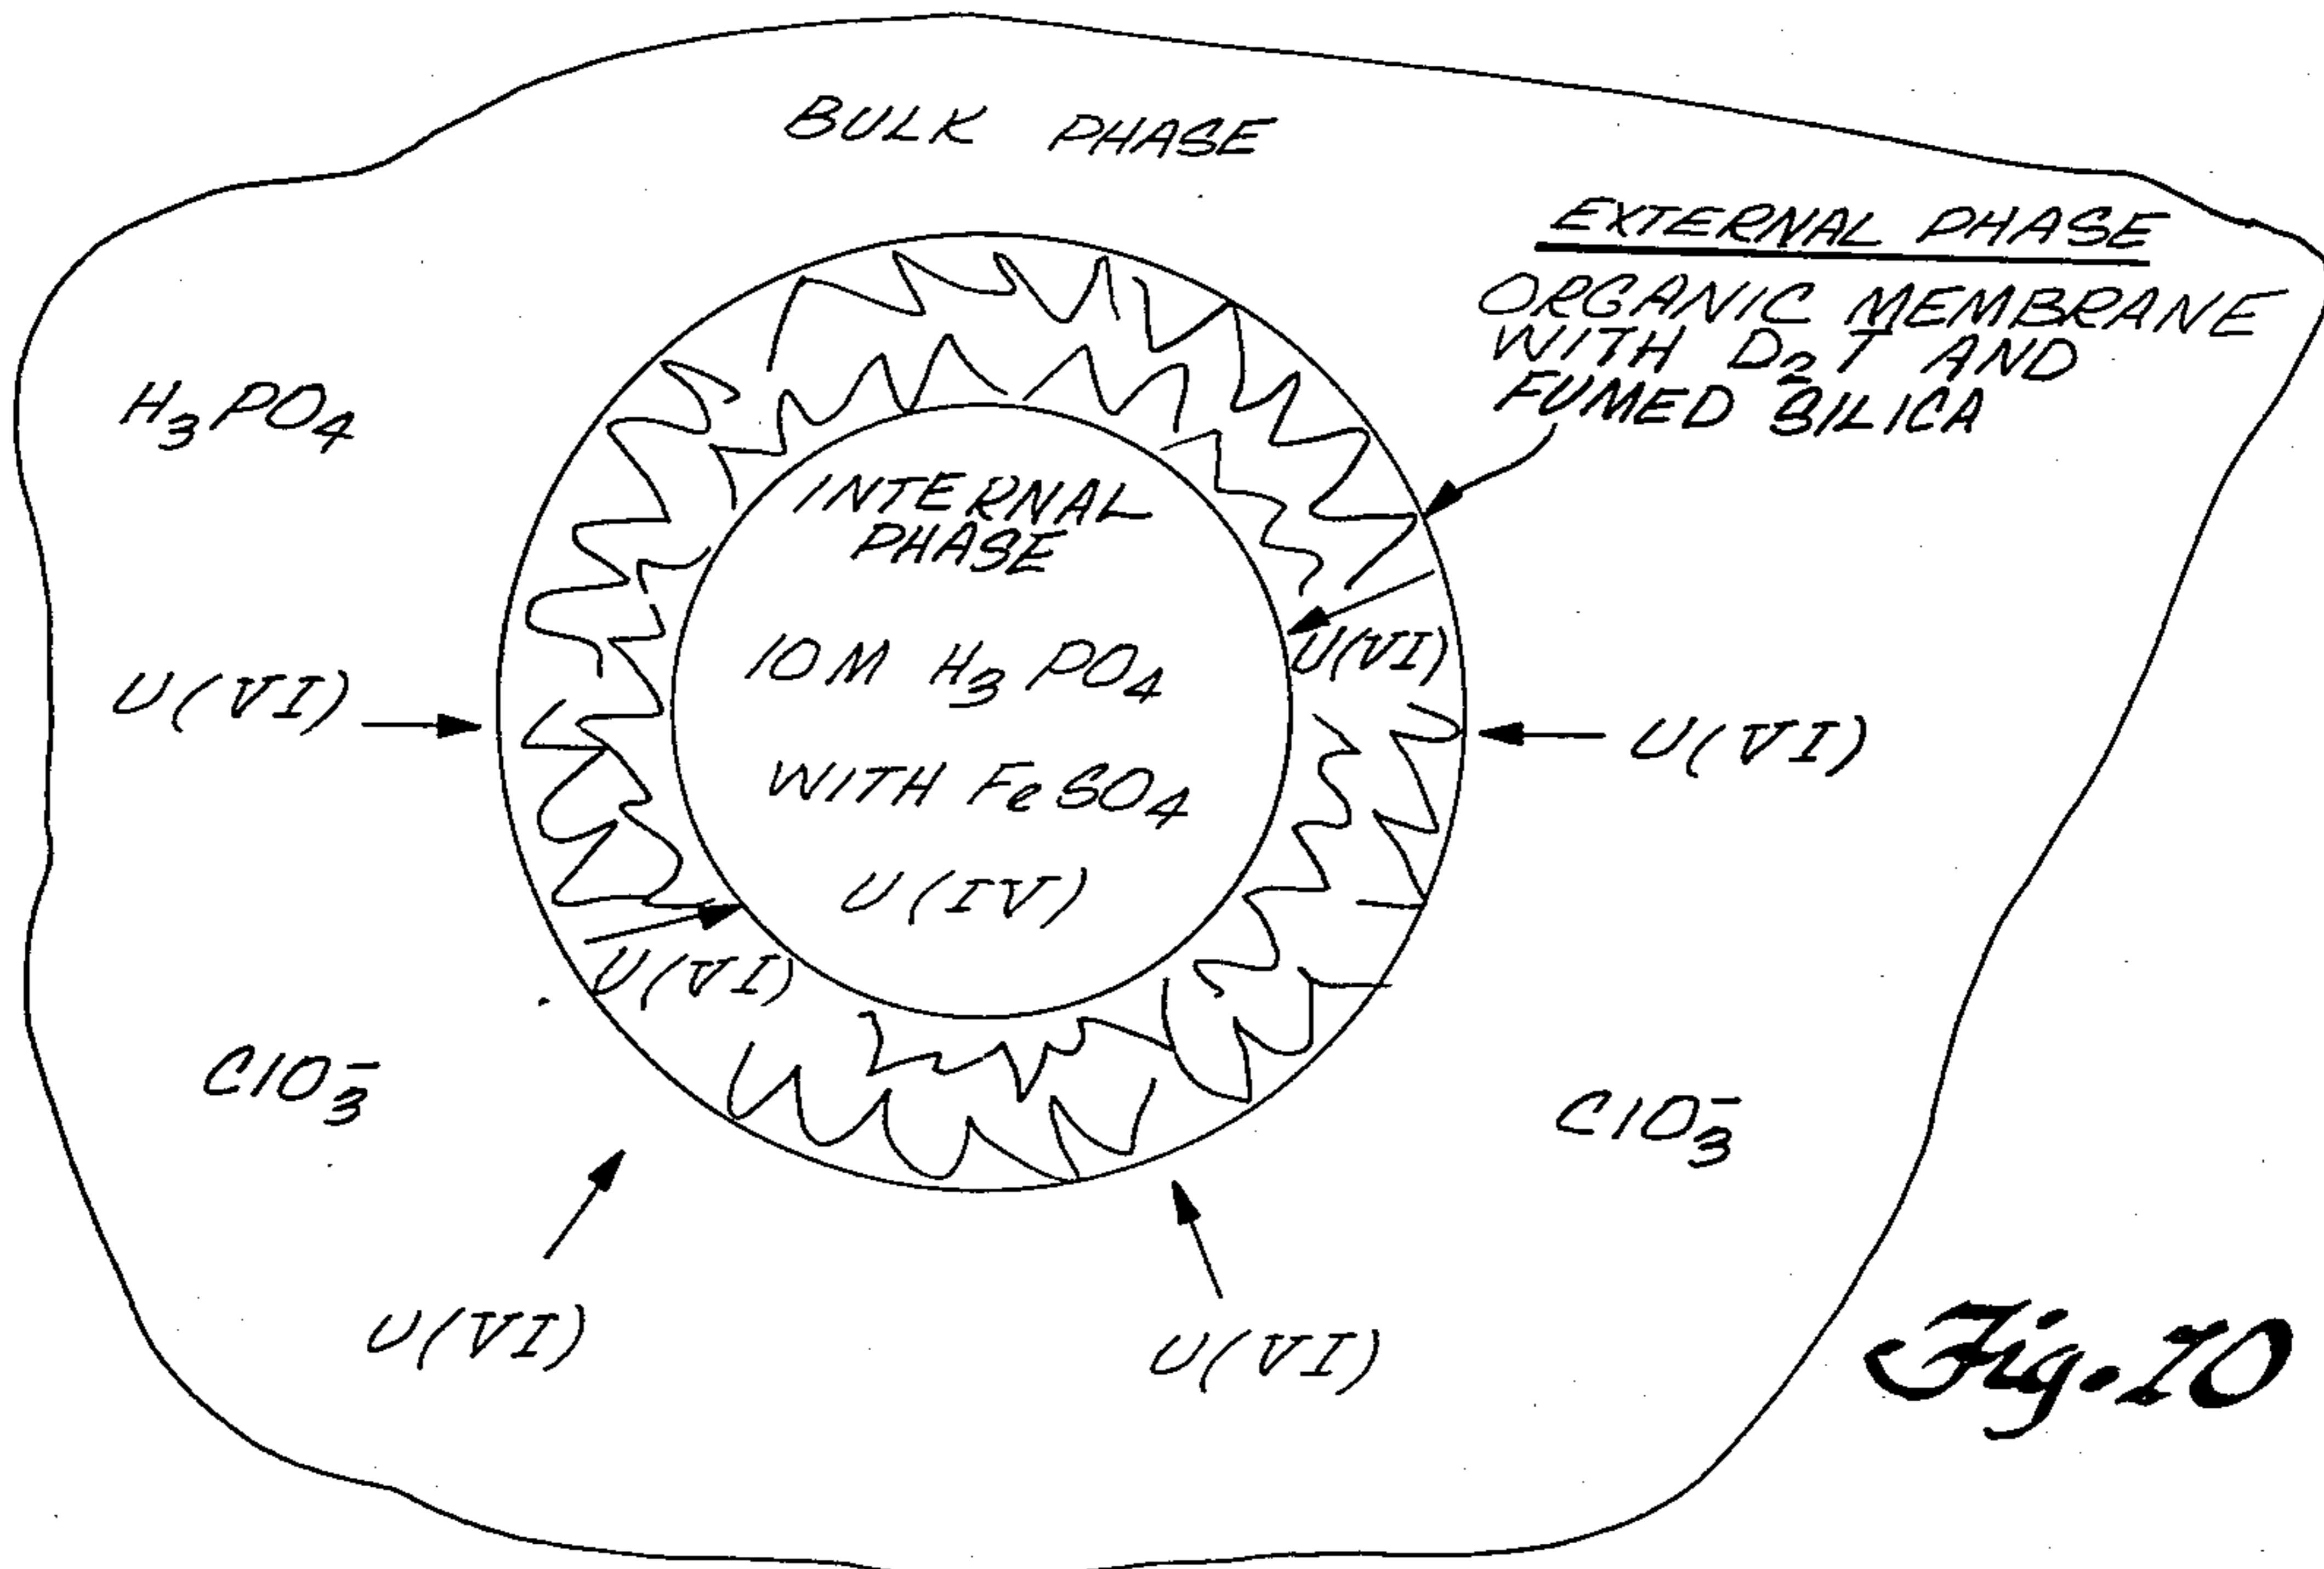 BULK PHASE
EXTERNAL PHASE
ORGANIC MEMBRANE
WITH D₂T AND
FUMED SILICA
H₃PO₄
INTERNAL
PHASE
10M H₃PO₄
U(VI)
U(VI)
U(VI)
WITH FeSO₄
U(IV)
U(VI)
ClO₃⁻
ClO₃⁻
U(VI)
U(VI)
Fig. 10